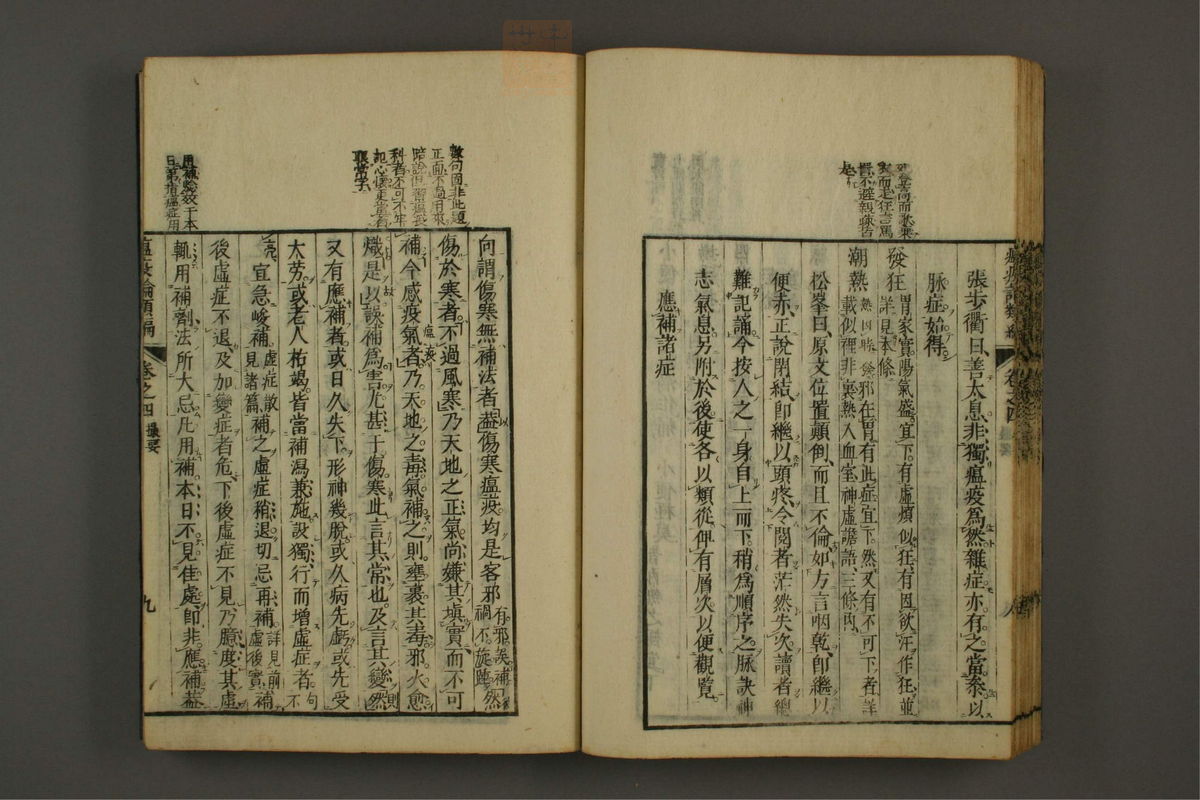 張步衢曰善太息非獨瘟疫為然雜症亦有之當叅以
脉症始得
發狂 胃家實陽氣盛宜下有虛煩似狂有因欲汗作狂並
詳見本條
潮熱 熱因時發邪在胃有此症宜下然又有不可下者詳
載似裡非裏熱入血室神虛譫語三條內
松峯曰原文位置顛倒而且不倫如方言咽乾即繼以
便赤正說閉結即繼以頭疼令閱者茫然失次讀者總
難記誦今按人之一身自上而下稍為順序之脉訣神
志氣息另附於後使各以類從俾有層次以便觀覧
應補諸症
數句固非此題
正面不過用來
陪說但習撮要
科者不可不牢
記心懷更當者
用補發于本
日第瘟症用
向謂傷寒無補法者蓋傷寒瘟疫均是客邪 有邪誤補 禍不旋踵 然
傷於寒者不過風寒乃天地之正氣尚嫌其填實而不可
補今感疫氣者乃天地之毒氣補之則壅裹其毒邪火愈
熾是以誤補為害尤甚于傷寒此言其常也及言其變則 然
又有應補者或日久失下形神幾脫或久病先虧或先受
大劳或老人枯竭皆當補瀉兼施設獨行而增虛症者 句 不
宜急峻補 虛症散 見諸篇 補之虛症稍退切忌再補 詳見前 虛後實 補
後虛症不退及加變症者危下後虛症不見乃臆度其虛
輒用補劑法所大忌凡用補本日不見佳處即非應補蓋
瘟疫論類編 卷之四 撮要 九